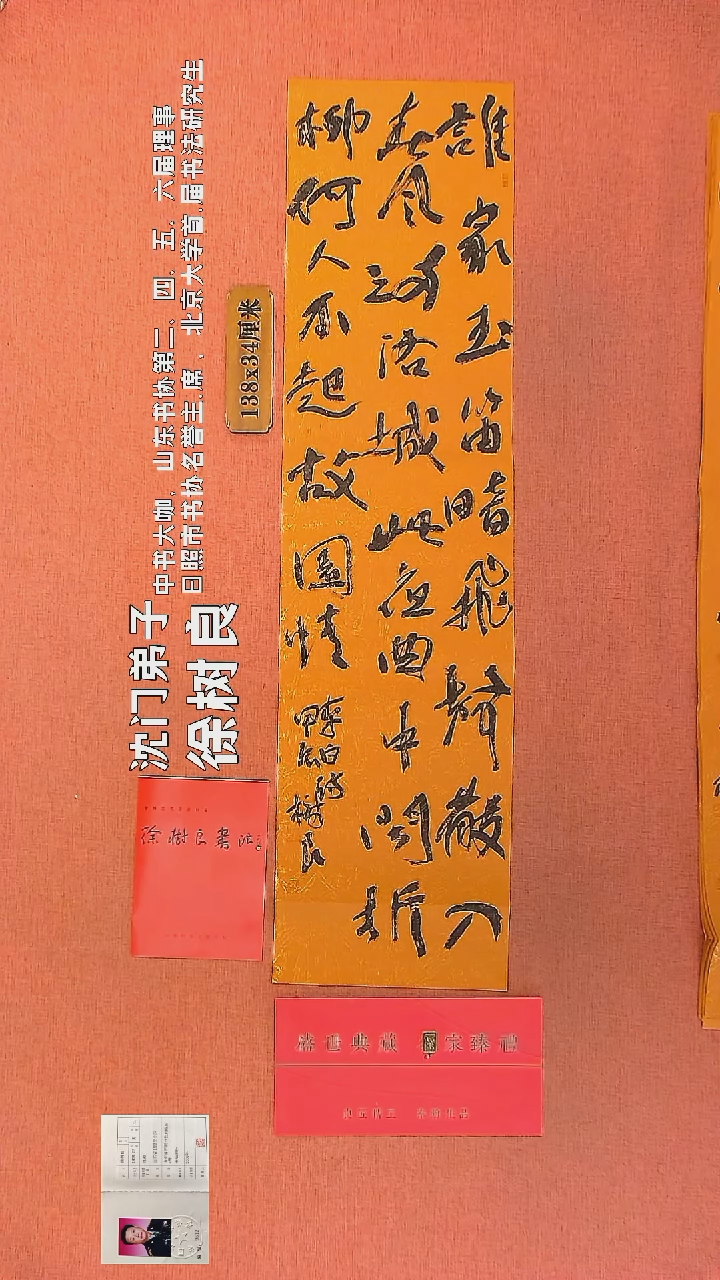 沈门弟子
徐树良
中书大咖，山东书协第二、四、五、六届理事
日照市书协名誉主席、北京大学首届书法研究生
138x34厘米
誰家玉笛暗飛聲散入
春風滿洛城此夜曲中聞折
柳何人不起故園情
白詩
樹良
徐樹良書法
盛世典藏 國